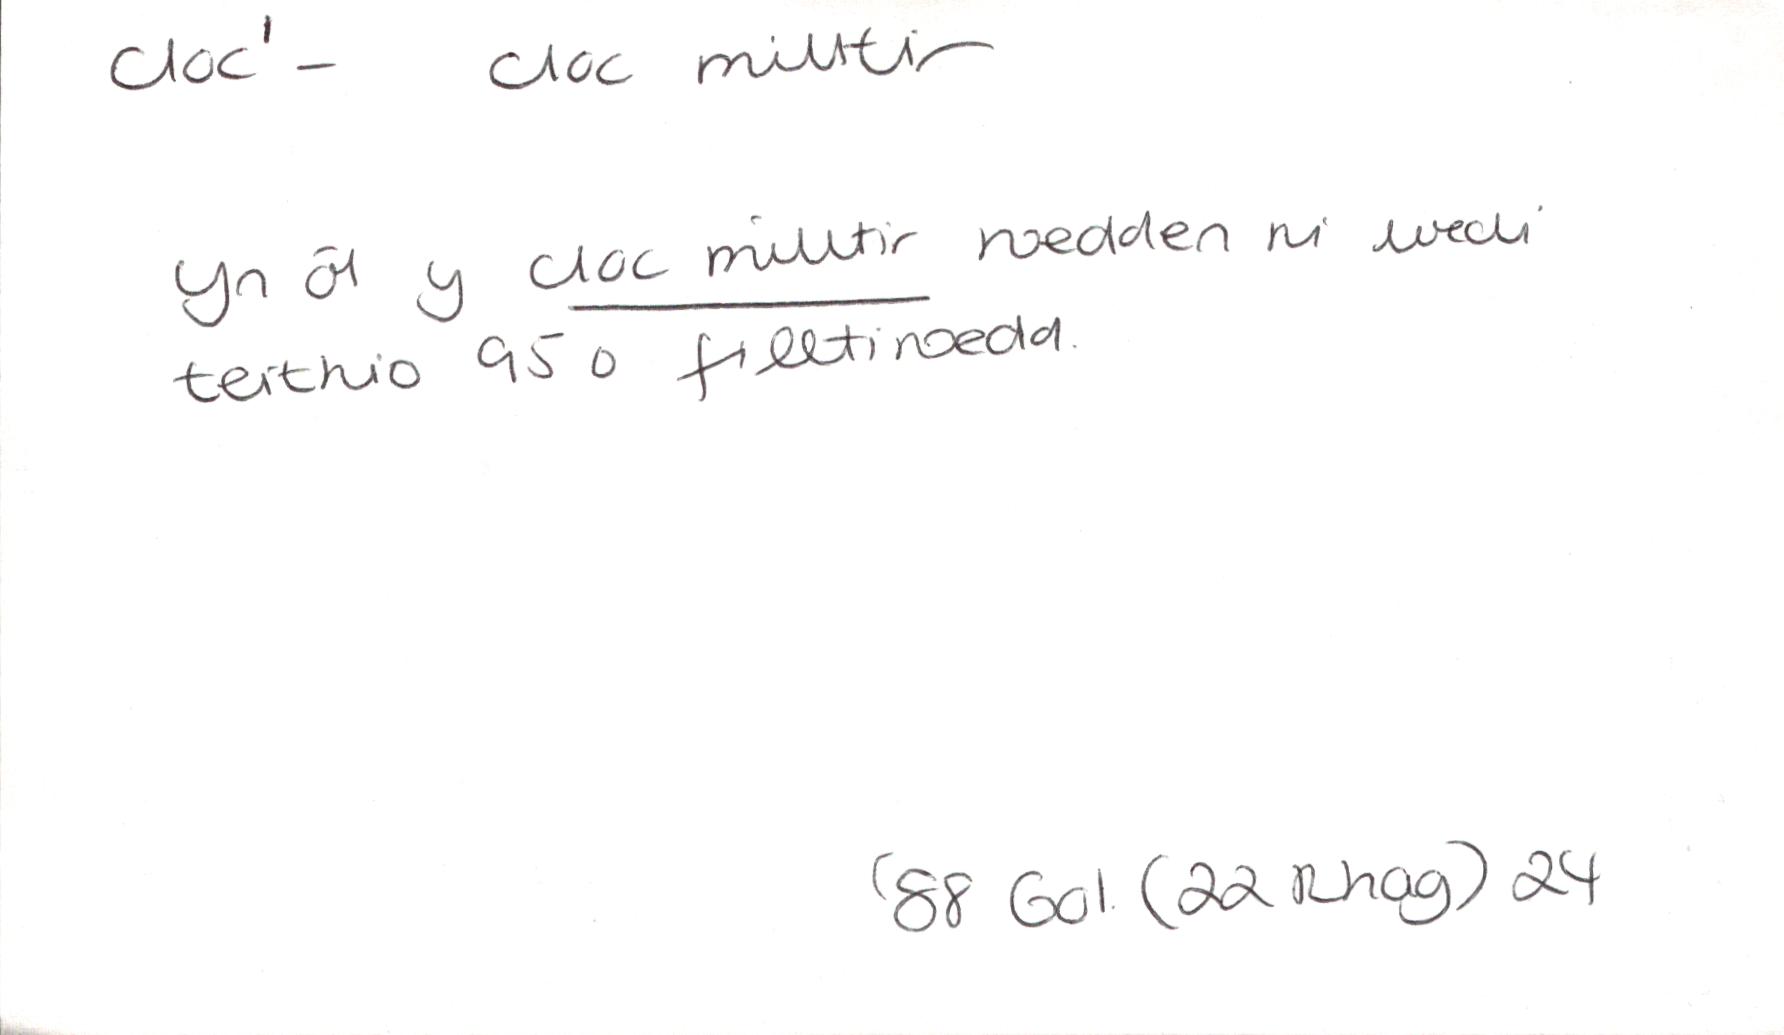 cloc¹ - cloc milltir
Yn ôl y cloc milltir roedden ni wedi
teithio 950 filltiroedd.
'88 Gol. (22 Rhag) 24